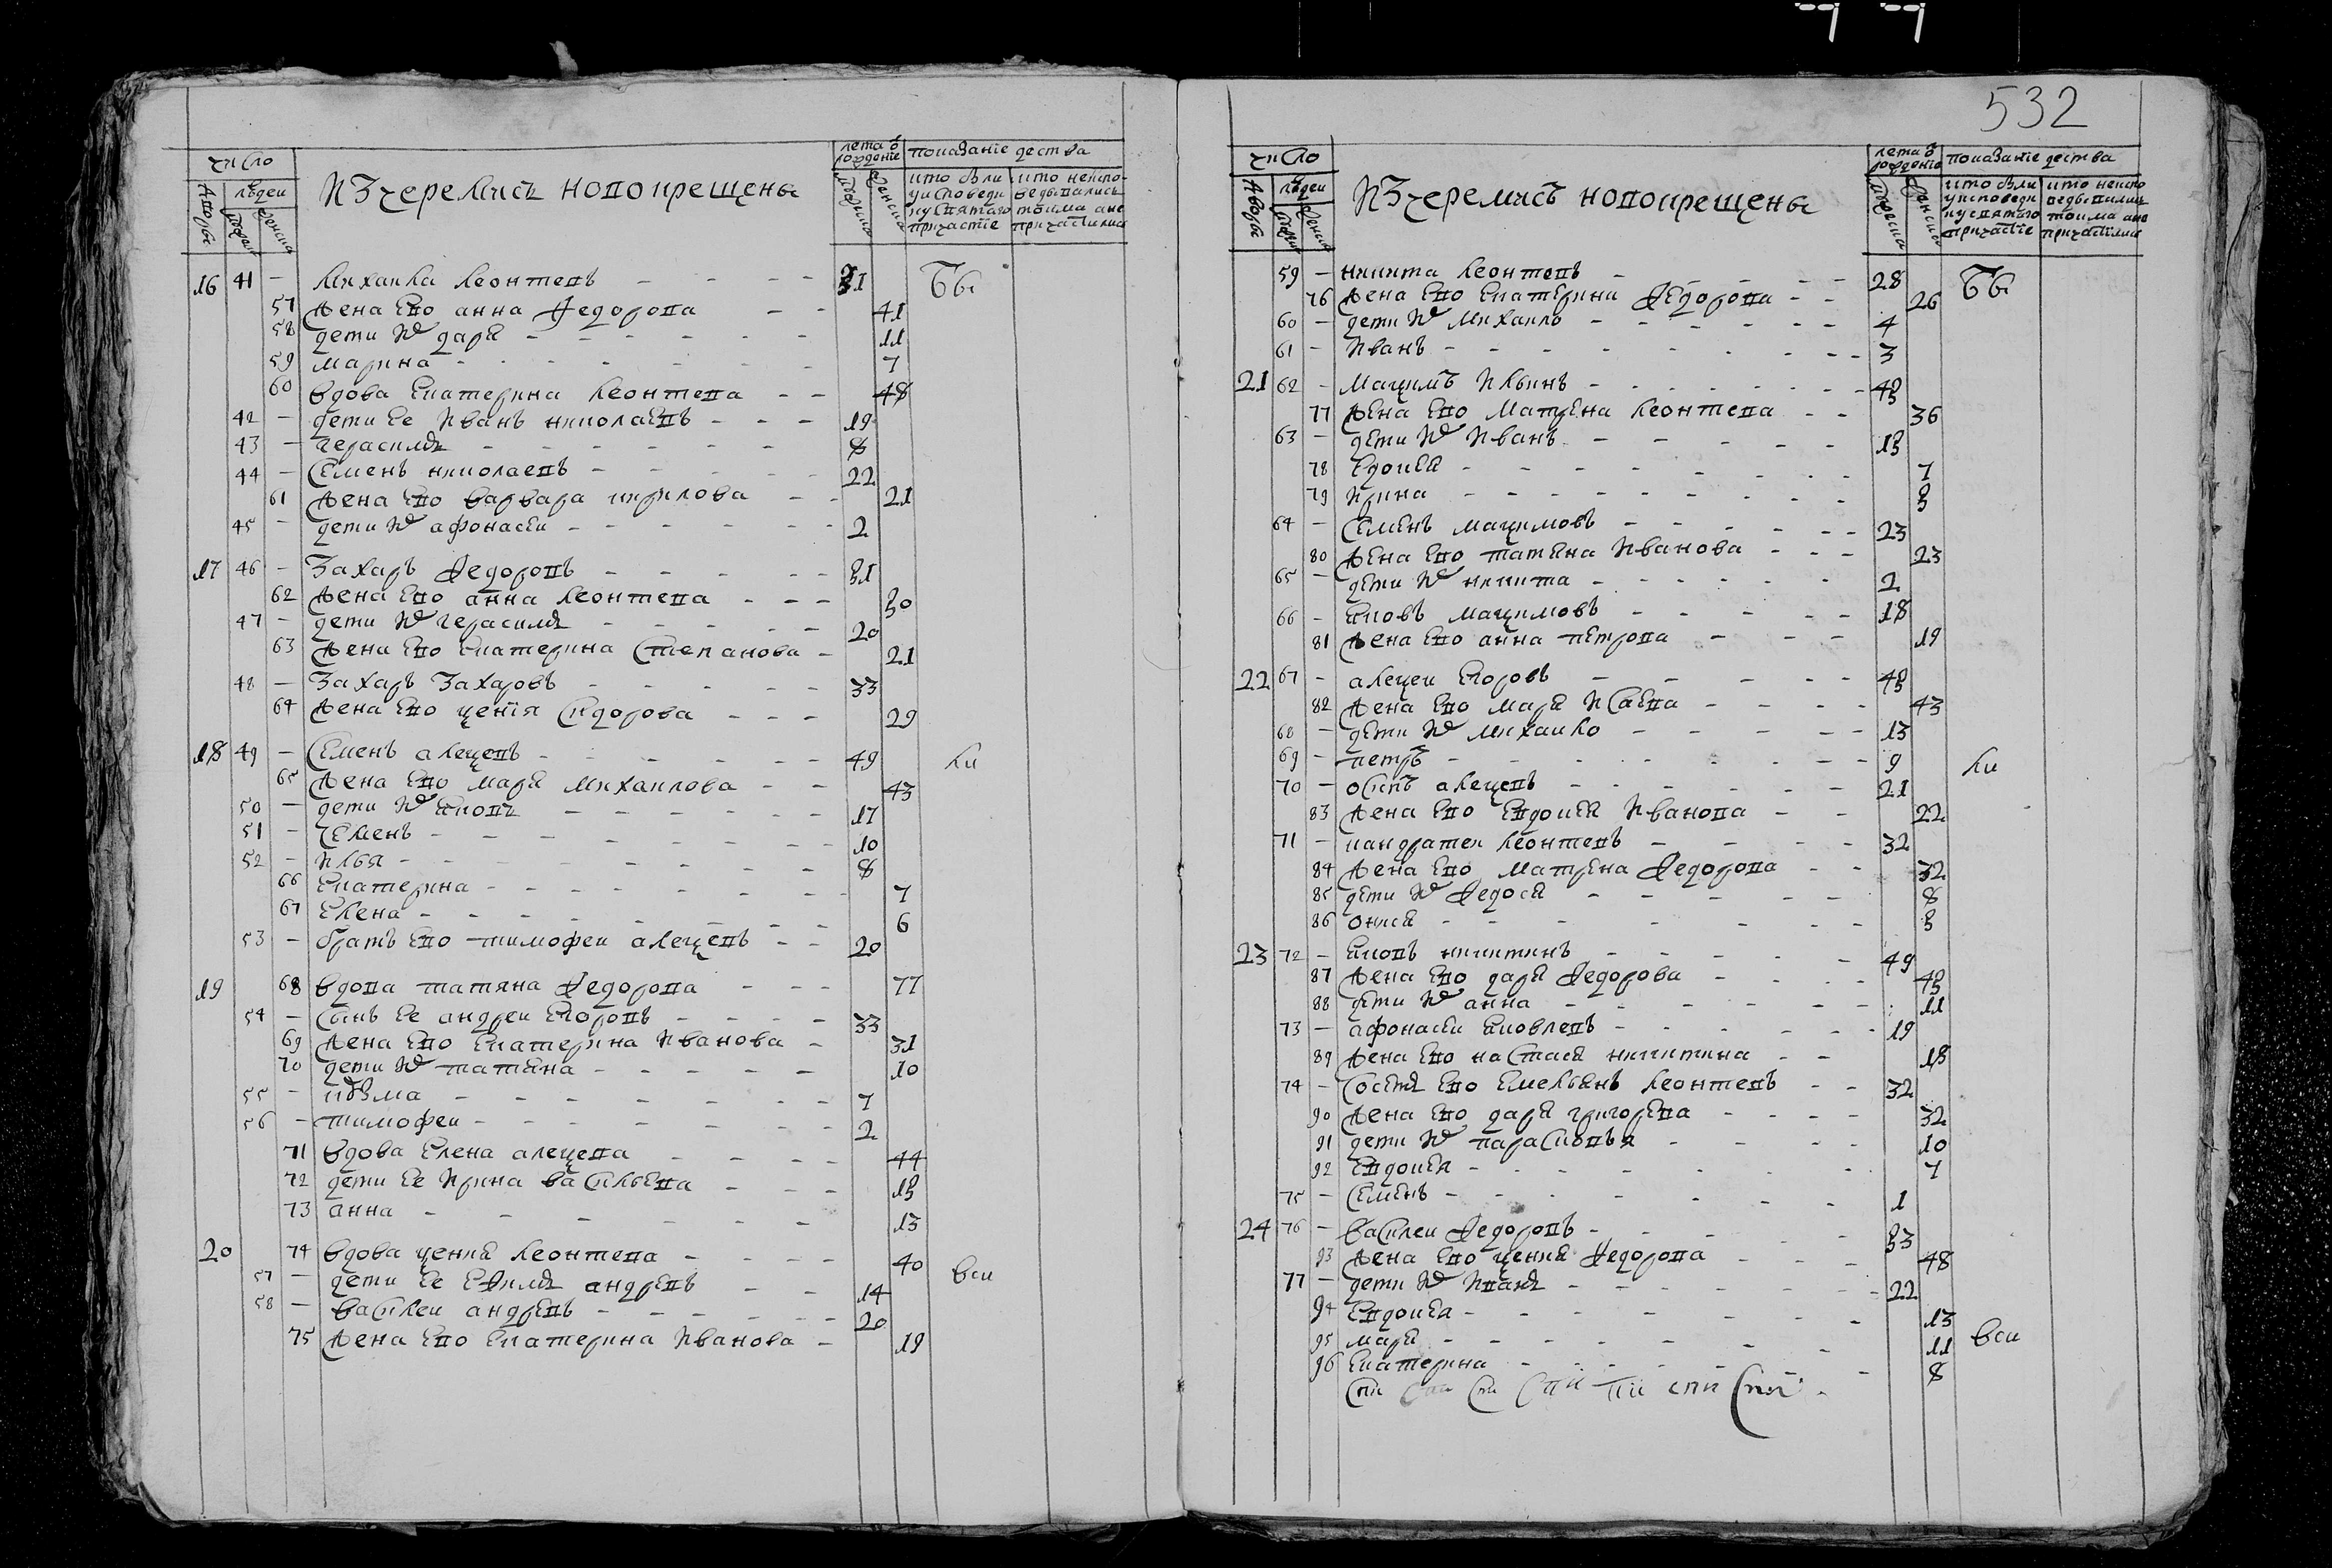 532
число
дворовъ
людеи
мужска
женска
Изчеремисъ новокрещены
лета ѿ рождениѧ
мужеска
женска
показание деиства
кто были у исповеди и у святаго причастїѧ
кто неиспо ведывались токмо а не причастились
16 41 – михаила леонтевъ 31 бы
57 жена ево анна федорова 41
58 дети их дарья 11
59 марина 7
60 вдова екатерина леонтева 48
42 – дети ее иванъ николаевъ 19
43 – герасимъ 8
44 – семенъ николаевъ 22
61 жена ево варвара кирилова 21
45 – дети их афонасеи 2
17 46 – захаръ федоровъ 51
62 жена ево анна леонтева 50
47 – дети их герасимъ 20
63 жена ево екатерина степанова 21
48 – захаръ захаровъ 33
64 жена ево ксенїя сидорова 29
18 49 – семенъ алексевъ 49 ли
65 жена ево марья михаилова 43
50 – дети их яковъ 17
51 – семенъ 10
52 – илья 8
66 екатерина 7
67 елена 6
53 – братъ ево тимофеи алексевъ 20
19 68 вдова татяна федорова 77
54 – сынъ ее андреи егоровъ 33
69 жена ево екатерина иванова 31
70 дети их татьяна 10
55 – кузма 7
56 – тимофеи 2
71 вдова елена алексева 44
72 дети ее ирина васильева 15
73 анна 13
20 74 вдова ксения леонтева 40 вси
57 – дети ее ефимъ андревъ 14
58 – василеи андревъ 20
75 жена ево екатерина иванова 19
число
дворовъ
людеи
мужска
женска
Изчеремисъ новокрещены
лета ѿ рождениѧ
мужеска
женска
показание деиства
кто были у исповеди и у святаго причастїе
кто неиспо ведывались токмо ане причастились
59 – никита леонтевъ 28 бы
76 жена ево екатерина федорова 26
60 – дети их михаило 4
61 – иванъ 3
21 62 – максимъ ильинъ 45
77 жена ево матрена леонтева 36
63 – дети их иванъ 15
78 едокья 7
79 ирина 5
64 – семенъ максимовъ 23
80 жена ево татяна иванова 23
65 – дети их никита 2
66 – яковъ максимовъ 18
81 жена ево анна петрова 19
22 67 – алексеи егоровъ 45
82 жена ево марья исаева 43
68 – дети их михаило 13
69 – петръ 9 ли
70 – осипъ алексевъ 21
83 жена ево евдокья иванова 22
71 – кандратеи леонтевъ 32
84 жена ево матрена федорова 32
85 дети их федосья 8
86 онисья 5
23 72 – яковъ никитинъ 49
87 жена ево дарья федорова 45
88 дети их анна 11
73 – афонасеи яковлевъ 19
89 жена ево настасья никитина 18
74 – соседъ ево емельянъ леонтевъ 32
90 жена ево дарья григорева 32
91 дети их парасковья 10
92 евдокья 7
75 – семенъ 1
24 76 – василеи федоровъ 53
93 жена ево ксенья федорова 48
77 – дети их иванъ 22
94 евдокья 13
95 марья 11 вси
96 екатерина 8